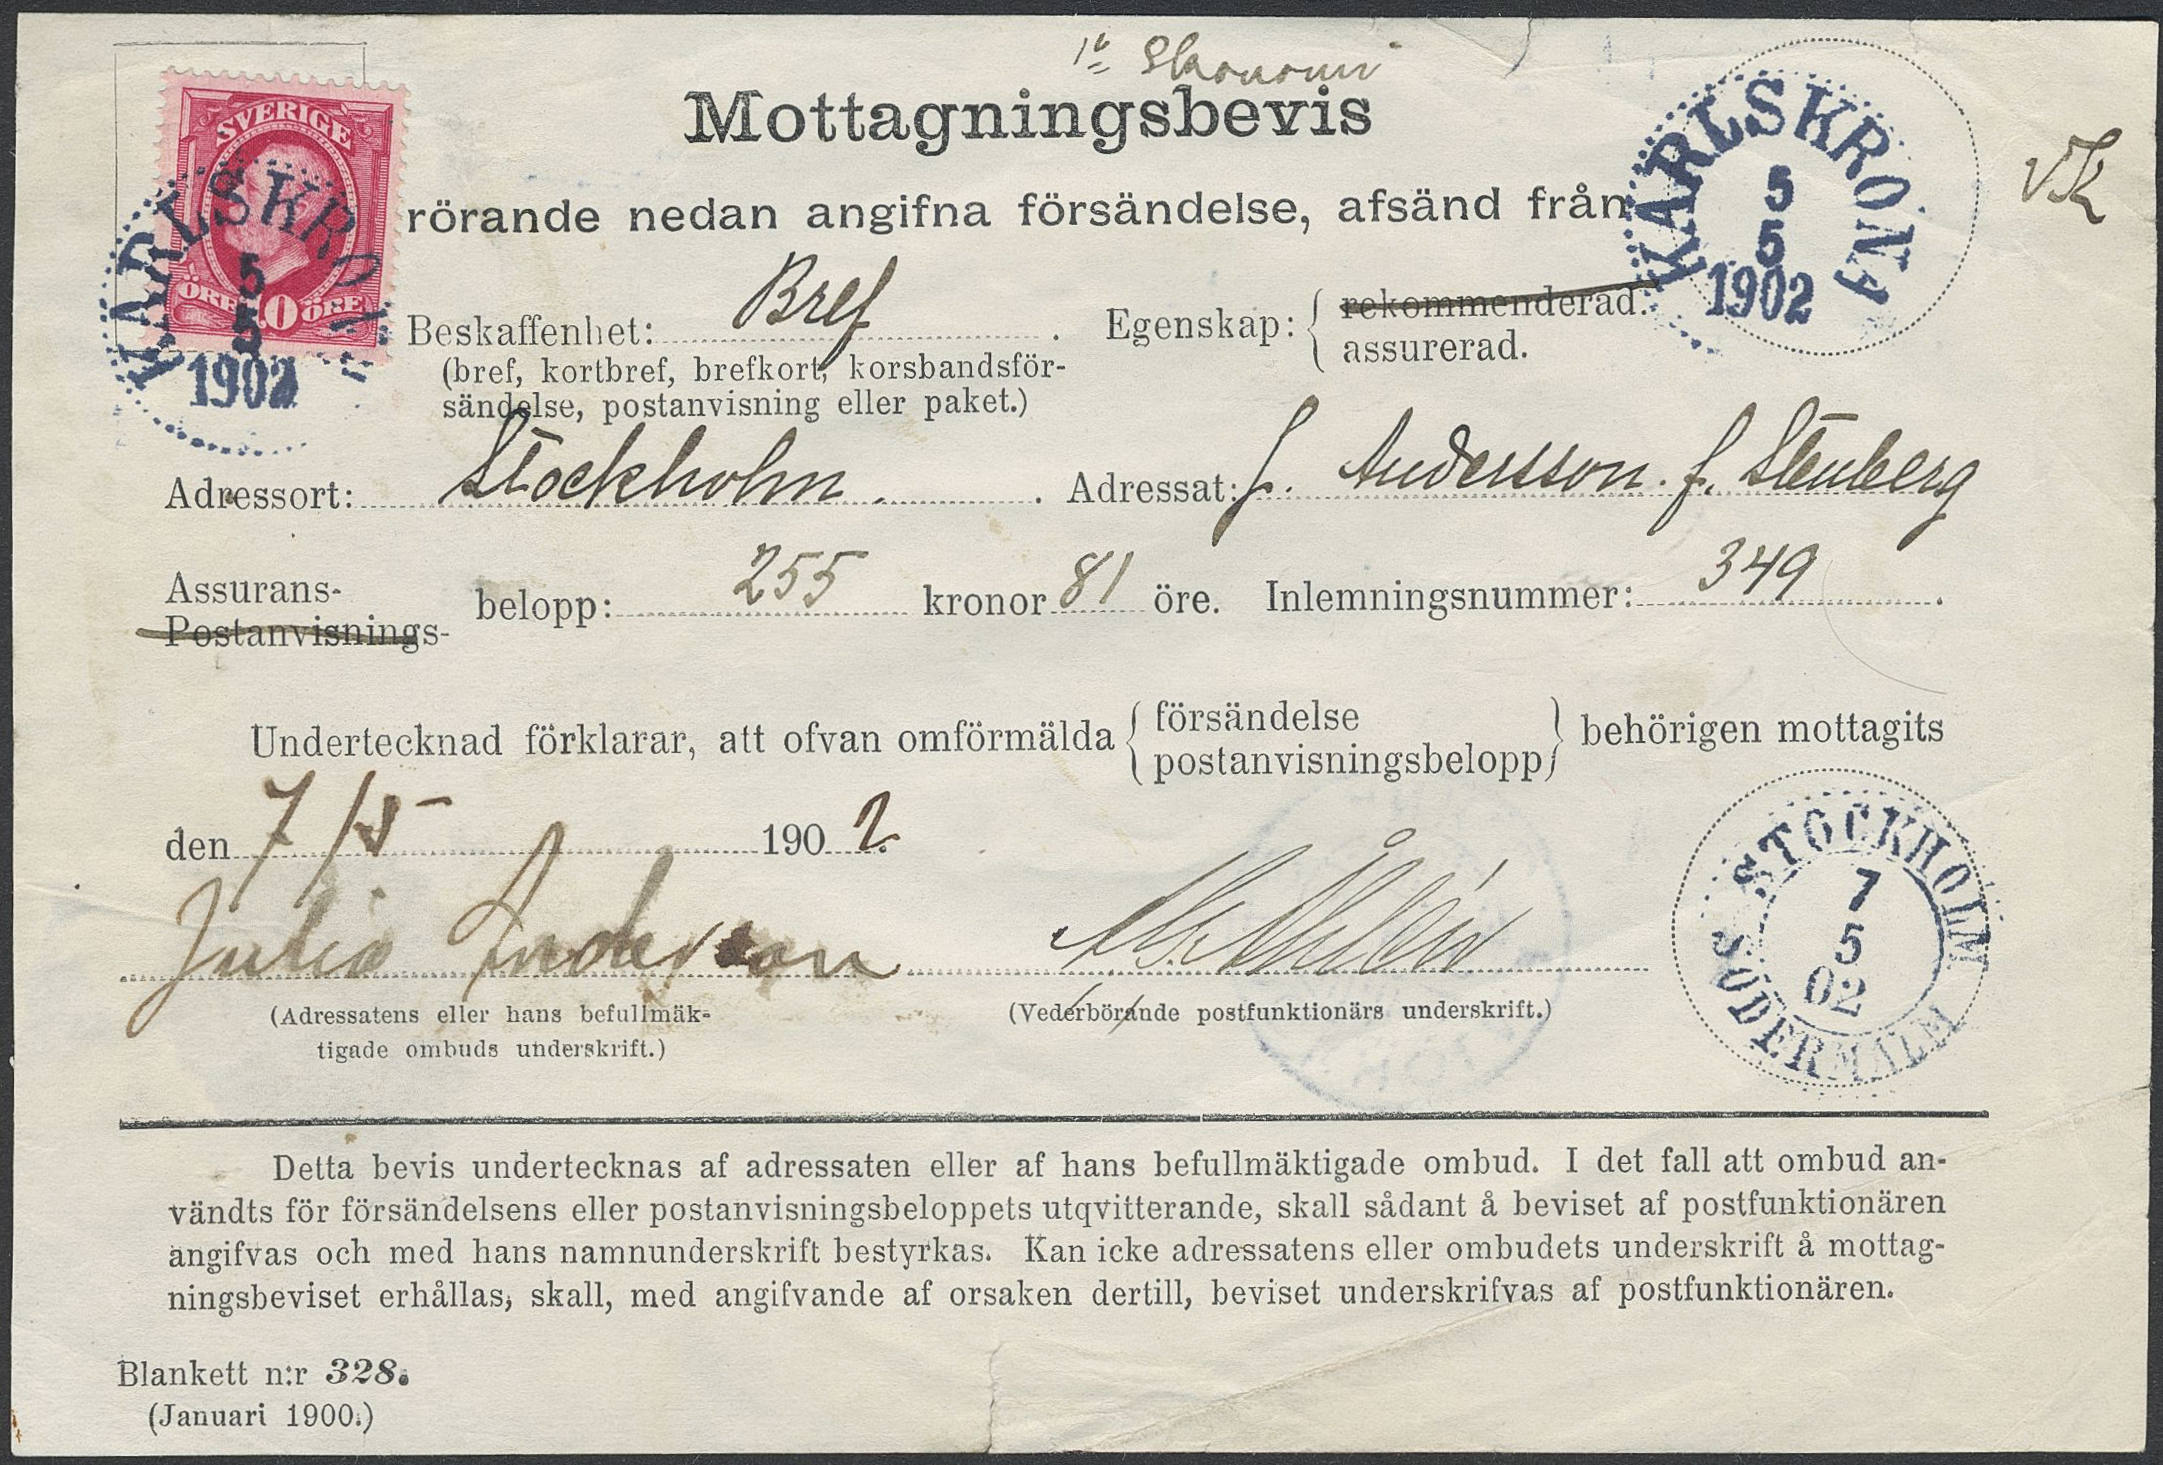 Mottagningsbevis
SVERIGE
ÖRE 10 ÖRE
KARLSKRONA
5
5
1902
rörande nedan angifna försändelse, afsänd från
KARLSKRONA
5
5
1902
Beskaffenhet: Bref . Egenskap: rekommenderad.
assurerad.
(bref, kortbref, brefkort, korsbandsför-
sändelse, postanvisning eller paket.)
Adressort: Stockholm . Adressat: J. Andersson f. Stenberg
Assurans-
Postanvisnings- belopp: 255 kronor 81 öre. Inlemningsnummer: 349 .
Undertecknad förklarar, att ofvan omförmälda försändelse
postanvisningsbelopp behörigen mottagits
den 7/5 1902.
Julia Anderson
STOCKHOLM
7
5
02
SÖDERMALM
(Adressatens eller hans befullmäk-
tigade ombuds underskrift.)
(Vederbörande postfunktionärs underskrift.)
Detta bevis undertecknas af adressaten eller af hans befullmäktigade ombud. I det fall att ombud an-
vändts för försändelsens eller postanvisningsbeloppets utqvitterande, skall sådant å beviset af postfunktionären
angifvas och med hans namnunderskrift bestyrkas. Kan icke adressatens eller ombudets underskrift å mottag-
ningsbeviset erhållas, skall, med angifvande af orsaken dertill, beviset underskrifvas af postfunktionären.
Blankett n:r 328.
(Januari 1900.)